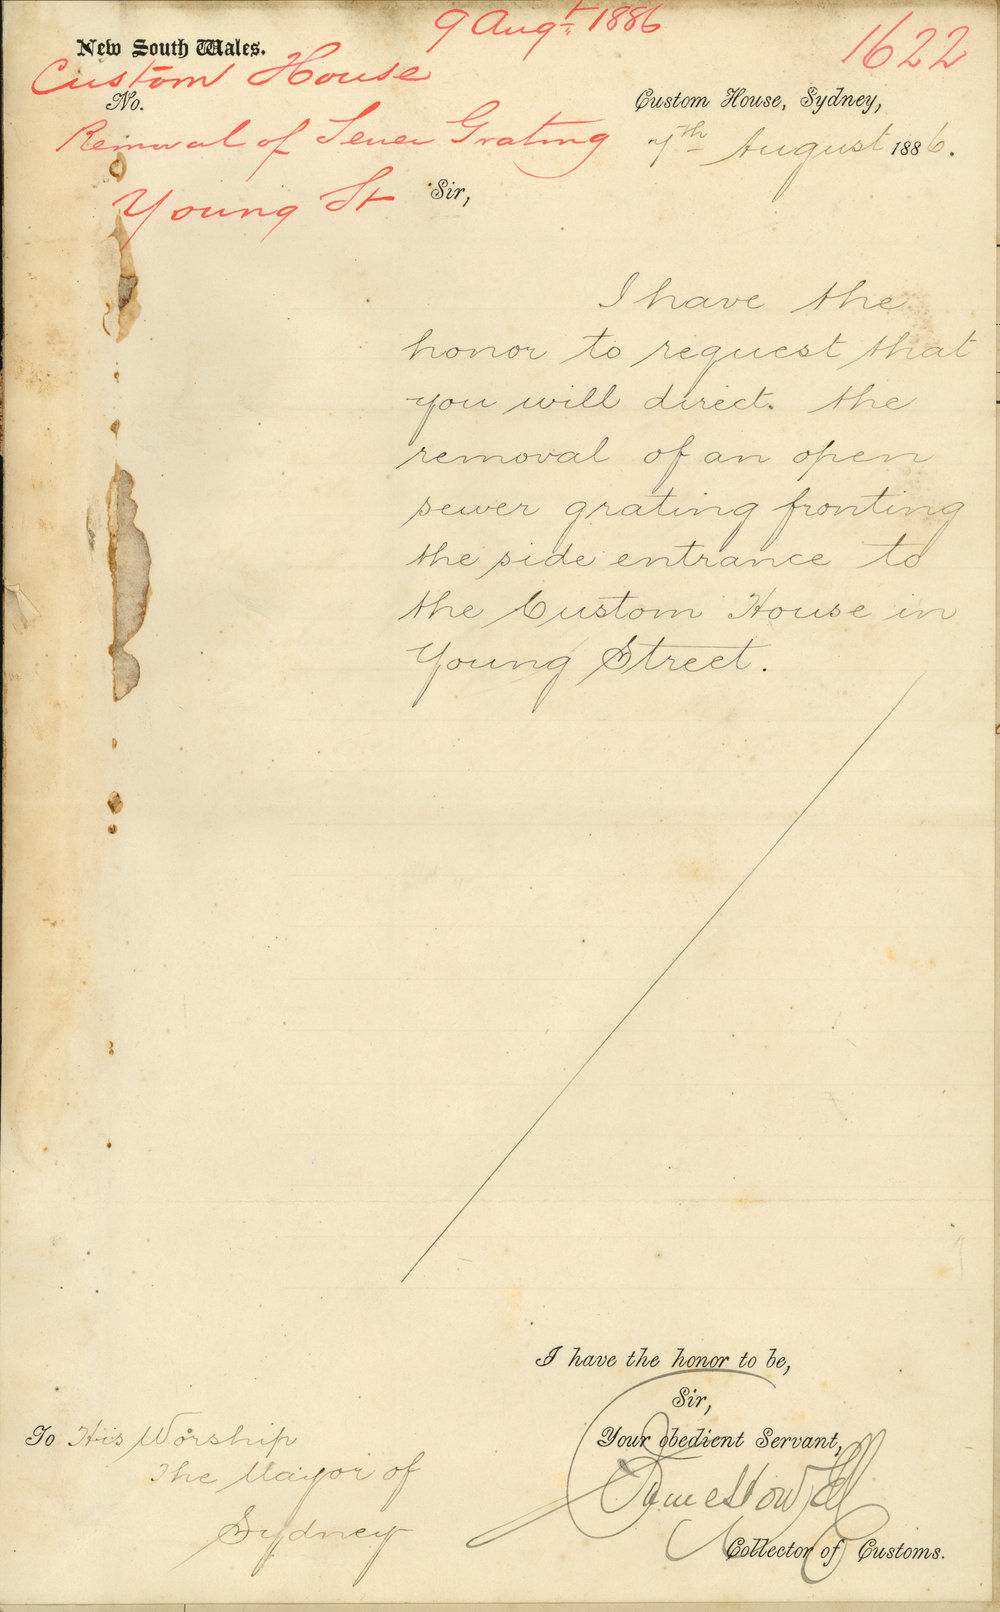 9 Augt 1886
1622
New South Wales.
Custom House
No.
Custom House, Sydney,
Removal of Sewer Grating
7th August 1886.
Young St
Sir,
I have the
honor to request that
you will direct. the
removal of an open
sewer grating fronting
the side entrance to
the Custom House in
Young Street.
I have the honor to be,
Sir,
Your obedient Servant,
To His Worship
The Mayor of
Sydney
Collector of Customs.